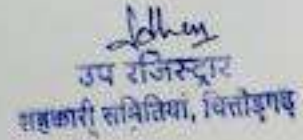 उप रजिस्ट्रार
सहकारी समितियां, चित्तोड़गढ़